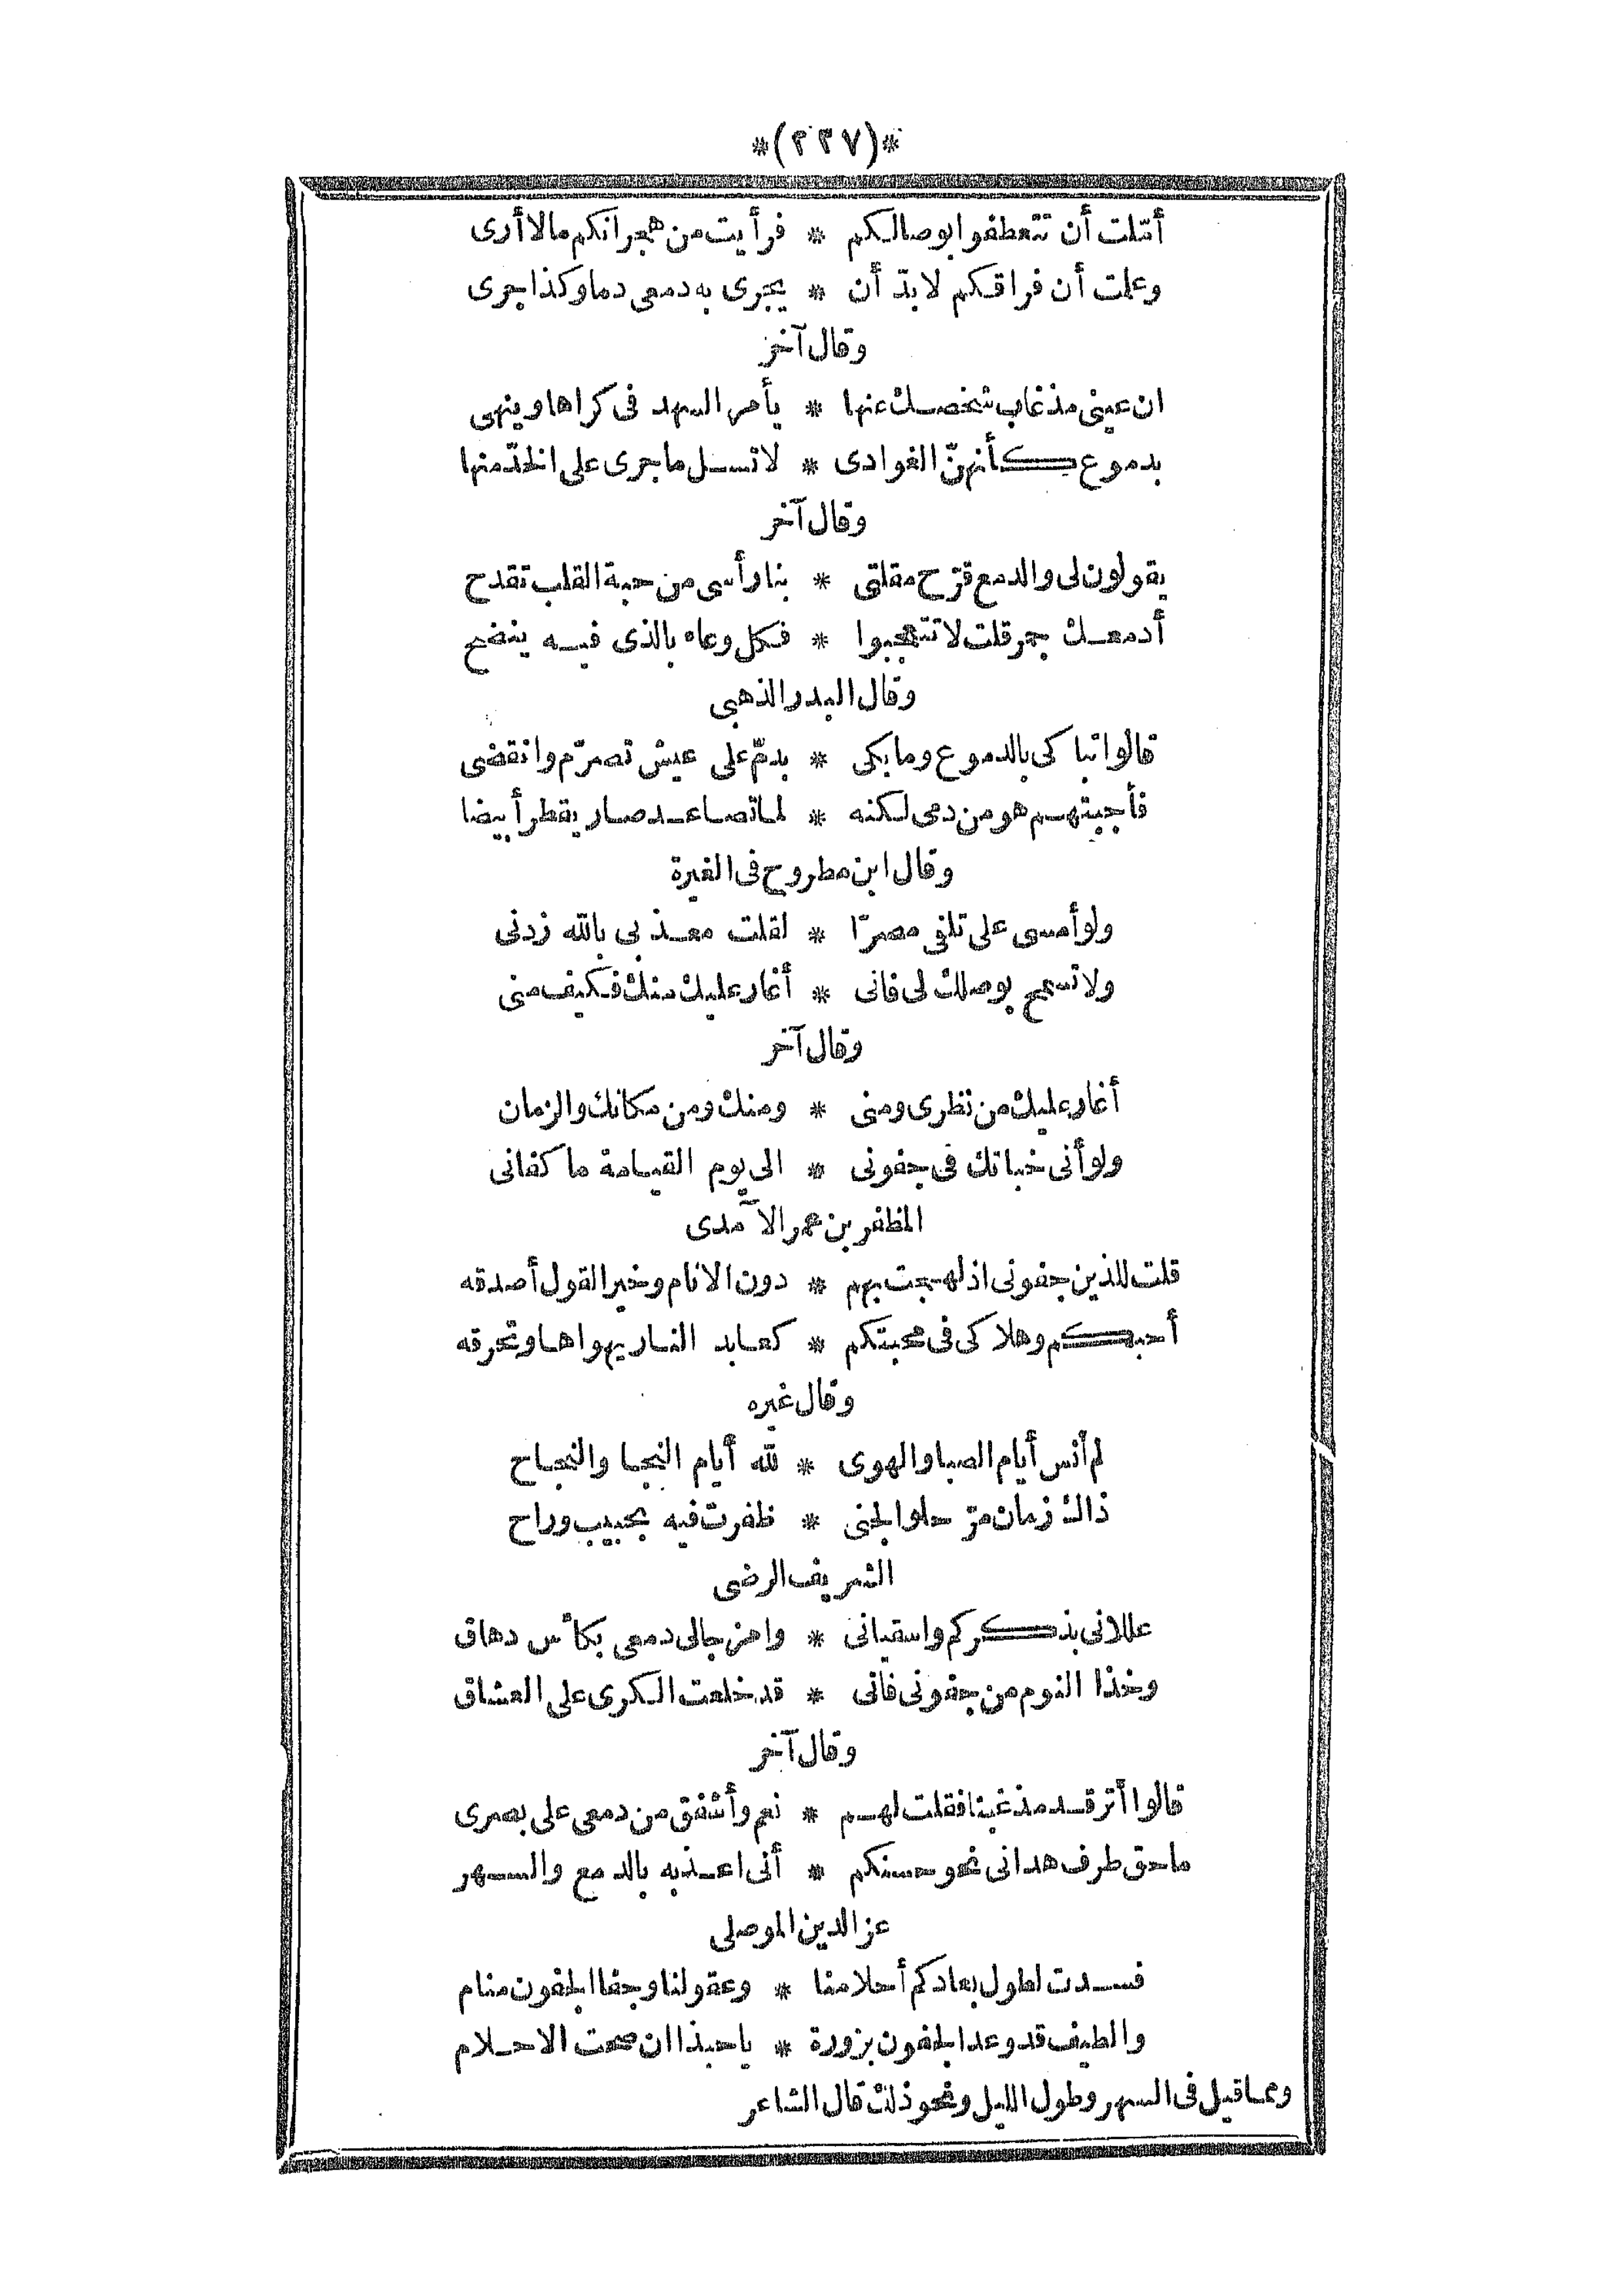 *(٢٣٧)*
أمّلت أن تتعطفوا بوصالكم * فرأيت من هجرانكم مالا أرى
وعلمت أن فراقكم لا بدّ أن * يجرى به دمعى دما وكذا جرى
وقال آخر
ان عينى مذ غاب شخصك عنها * يأمر السهد فى كراها وينهى
بدموع كأنهنّ الغوادى * لا تسل ما جرى على الخدّ منها
وقال آخر
يقولون لى والدمع قرّح مقلتى * بنار أسى من حبة القلب تقدح
أدمعك جمر قلت لا تتعجبوا * فكل وعاء بالذى فيه ينضح
وقال البدر الذهبى
قالوا تباكى بالدموع وما بكى * بدمّ على عيش تصرّم وانقضى
فأجبتهم هو من دمى لكنه * لما تصاعد صار يقطر أبيضا
وقال ابن مطروح فى الغيرة
ولو أمسى على تلفى مصرّا * لقلت معذبى بالله زدنى
ولا تسمح بوصلك لى فانى * أغار عليك منك فكيف منى
وقال آخر
أغار عليك من نظرى ومنى * ومنك ومن مكانك والزمان
ولو أنى خباتك فى جفونى * الى يوم القيامة ما كفانى
المظفر بن عمر الآمدى
قلت للذين جفونى اذ لهجت بهم * دون الانام وخير القول أصدقه
أحبكم وهلاكى فى محبتكم * كعابد النار يهواها وتحرقه
وقال غيره
لم أنس أيام الصبا والهوى * لله أيام النجا والنجاح
ذاك زمان مرّ حلو الجنى * ظفرت فيه بحبيب وراح
الشريف الرضى
عللانى بذكركم واسقيانى * وامزجالى دمعى بكأس دهاق
وخذا النوم من جفونى فانى * قد خلعت الكرى على العشاق
وقال آخر
قالوا أترقد مذ غبنا فقلت لهم * نعم وأشفق من دمعى على بصرى
ما حق طرف هدانى نحو حسنكم * أنى اعذبه بالدمع والسهر
عز الدين الموصلى
فسدت لطول بعادكم أحلامنا * وعقولنا وجفا الجفون منام
والطيف قد وعد الجفون بزورة * يا حبذا ان صحت الاحلام
ومما قيل فى السهر وطول الليل ونحو ذلك قال الشاعر